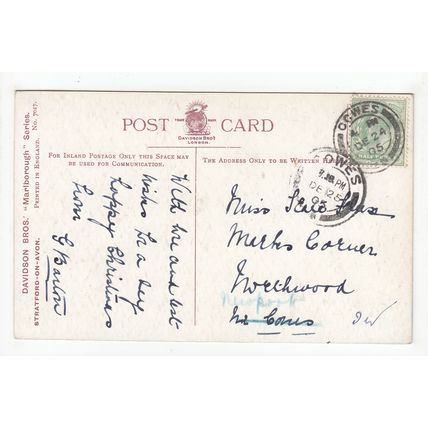 POST CARD
TRADE MARK
DAVIDSON BROS
LONDON.
FOR INLAND POSTAGE ONLY THIS SPACE MAY
BE USED FOR COMMUNICATION.
THE ADDRESS ONLY TO BE WRITTEN HERE
DAVIDSON BROS.' "Marlborough" Series.
PRINTED IN ENGLAND. No. 7017.
STRATFORD-ON-AVON.
With love and best
wishes for a very
happy Christmas
from
G Barton
Miss
Marks Corner
Northwood
Newport
Nr Cowes
I W
COWES
DE 24
05
COWES
PM
DE 25
05
HALF